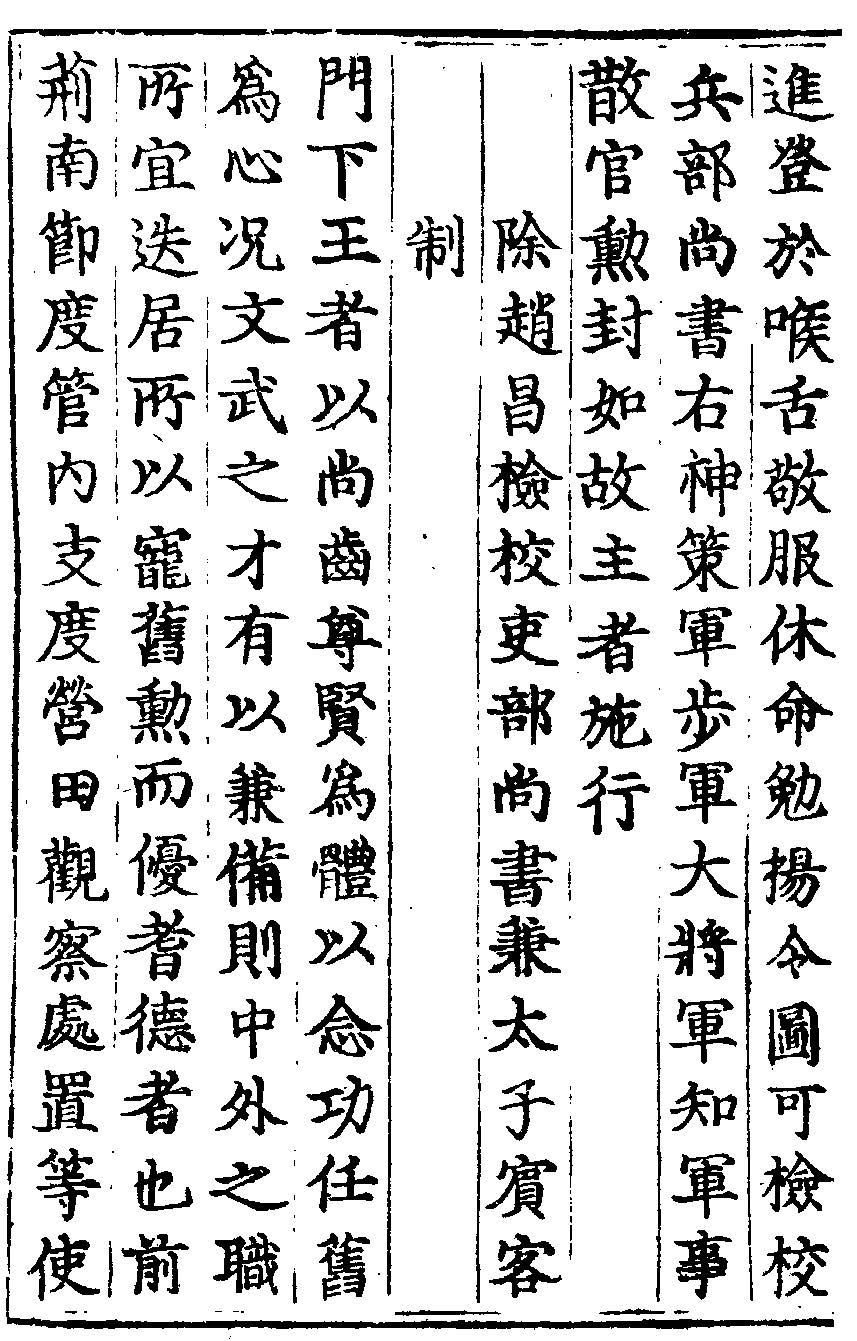 進登於喉舌敬服休命勉揚令圖可檢校
兵部尚書右神策軍步軍大將軍知軍事
散官勲封如故主者施行
除趙昌檢校吏部尚書兼太子賔客
制
門下王者以尚齒尊賢爲體以念功任舊
爲心况文武之才有以兼備則中外之職
所宜迭居所以寵舊勲而優耆德者也前
荊南節度管内支度營田觀察處置等使